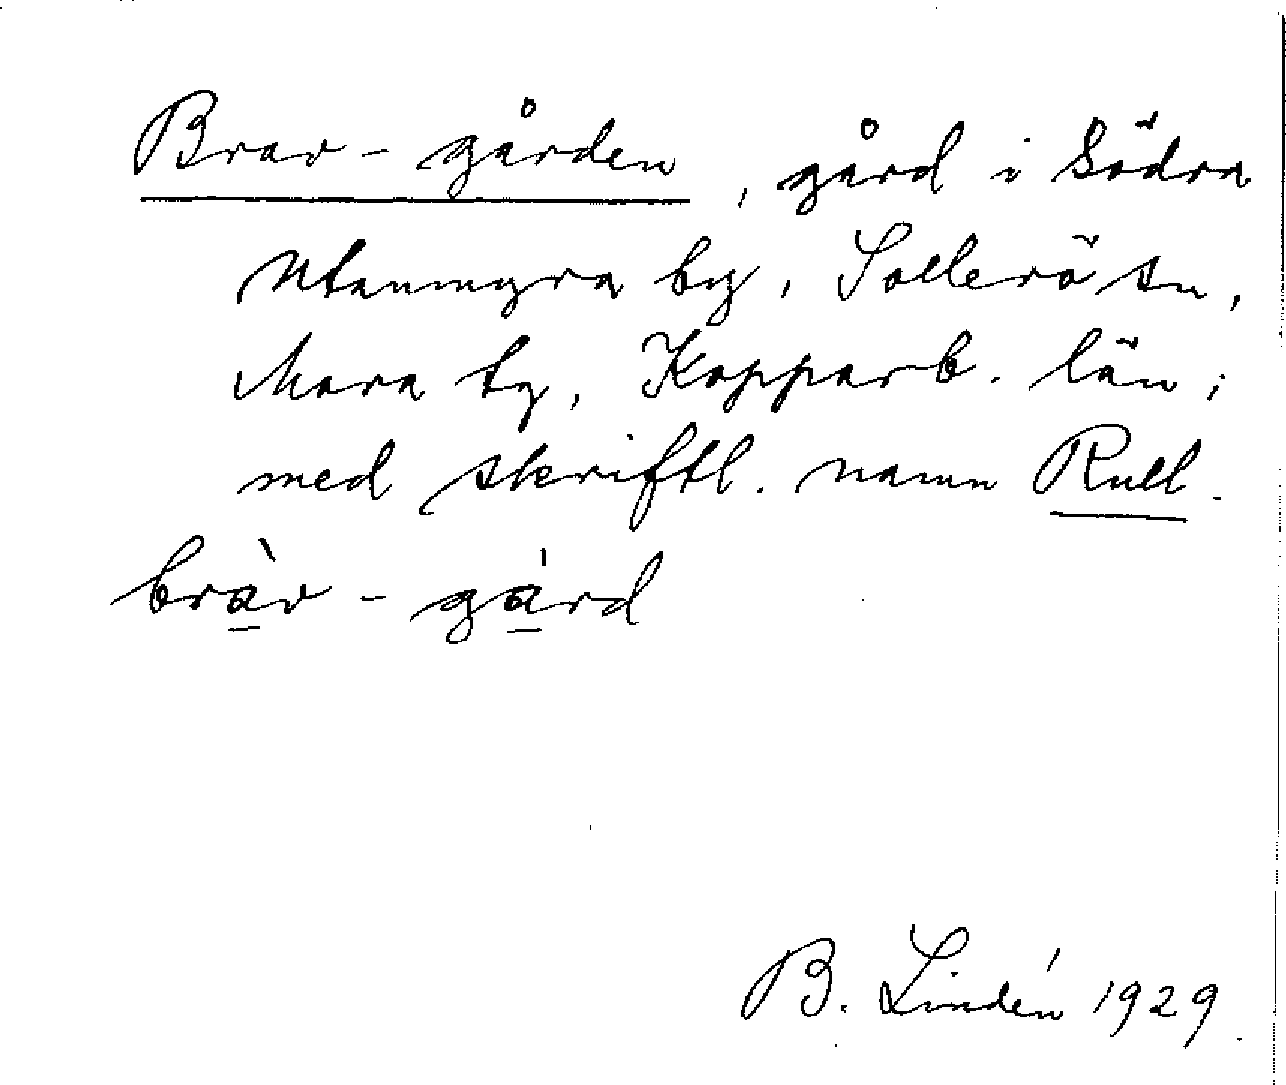 Brav-gården, gård i Södra
Utanmyra by, Sollerö sn,
Mora tg, Kopparb. län;
med skriftl. namn Rull.
bràv-gárd
B. Lindén 1929